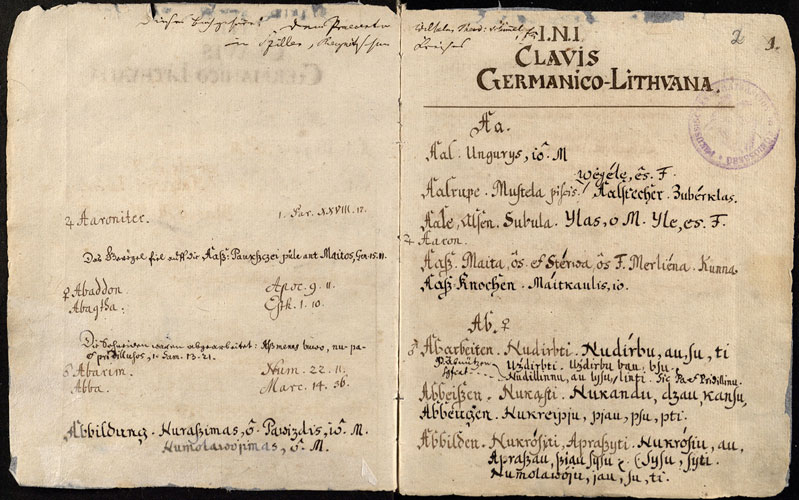 Dieses
dem Praecentor
in Spillen
♃ Aaroniter. 1. Par. XXVIII. 17.
Das Gevögel fiel auf die Aaß: Paukszczei püle ant Maitos, Gen. 15. 11.
♀ Abaddon Apoc. 9. 11
Abagtha: Esth. 1. 10.
Die Schneiden waren abgearbeitet: Aszmenes buwo, nu-pa-
1. Sam. 13-21.
♂ Abarim. Num. 22. 11.
Abba. Marc. 14. 36.
Abbildung. Nuraszimas, ô Pawizdis, iô. M.
Numolawojimas, ô. M.
2 1.
I.N.I.
CLAVIS
GERMANICO-LITHVANA.
Aa.
Aal. Ungurys, iô. M
Wėgėle, ês. F.
Aalrupe. Mustela piscis. Aalstecher. Žubėrklas.
Aale, Ahlsen. Subula. Ylas, o M. Yle, es. F.
♃ Aaron.
Aaß. Maita, ôs. et Stérwa, ôs F. Merliena. Kunna
Aaß-Knochen. Maitkaulis, io.
Ab. ♀
♂ Abarbeiten. Nudirbti. Nudirbu, au, su, ti
Uždirbti. Uždirbu bau, bsu.
Nudillinnu, au lysu, linti. Sic Pa et Pridillinu.
Abbeißen. Nukąsti. Nukandu, dzau, kansu,
Abbeugen. Nukreipju, pjau, psu, pti.
Abbilden. Nukrôsiti, Apraszyti. Nukrôsiu, au,
Apraszau, sziau sysu (sysu, syti.
Numolawoju, jau, su, ti.